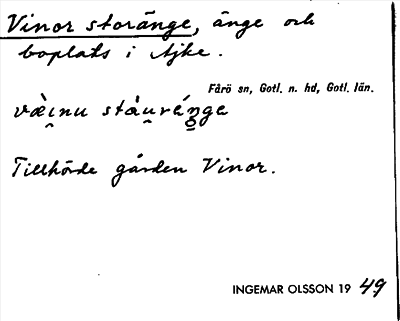 Vinor storänge, änge och
boplats i Ajke.
Fårö sn, Gotl. n. hd, Gotl. län.
væ̀i̯nu stàu̯rǽŋge
Tillhörde gården Vinor.
INGEMAR OLSSON 19 49